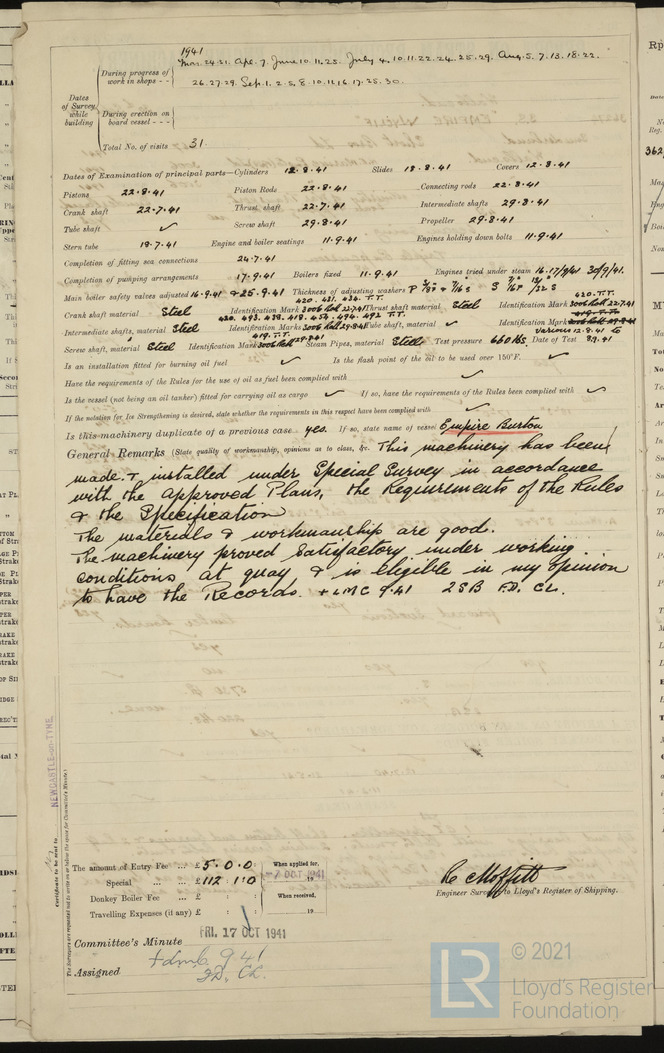 1941
During progress of work in shops - - Mar. 24. 31. Apr. 7. June 10. 11. 25. July 4. 10. 11. 22. 24. 25. 29. Aug. 5. 7. 13. 18. 22.
26. 27. 29. Sep. 1. 2. 5. 8. 10. 11. 16. 17. 25. 30.
Dates of Survey while building
During erection on board vessel - - -
Total No. of visits 31.
Dates of Examination of principal parts—Cylinders 12.8.41 Slides 18.8.41 Covers 12.8.41
Pistons 22.8.41 Piston Rods 22.8.41 Connecting rods 22.8.41
Crank shaft 22.7.41 Thrust shaft 22.7.41 Intermediate shafts 29.8.41
Tube shaft ✓ Screw shaft 29.8.41 Propeller 29.8.41
Stern tube 18.7.41 Engine and boiler seatings 11.9.41 Engines holding down bolts 11.9.41
Completion of fitting sea connections 24.7.41
Completion of pumping arrangements 17.9.41 Boilers fixed 11.9.41 Engines tried under steam 16.17/9/41 30/9/41.
Main boiler safety valves adjusted 16.9.41 & 25.9.41 Thickness of adjusting washers
Crank shaft material Steel Identification Mark 3006 22.7.41 Thrust shaft material Steel Identification Mark 3006 22.7.41
Intermediate shafts, material Steel Identification Marks 3006 29.8.41 Tube shaft, material ✓ Identification Mark
Screw shaft, material Steel Identification Mark 3006 29.8.41 Steam Pipes, material Steel Test pressure 660 lbs. Date of Test
Is an installation fitted for burning oil fuel ✓ Is the flash point of the oil to be used over 150°F. ✓
Have the requirements of the Rules for the use of oil as fuel been complied with ✓
Is the vessel (not being an oil tanker) fitted for carrying oil as cargo ✓ If so, have the requirements of the Rules been complied with ✓
If the notation for Ice Strengthening is desired, state whether the requirements in this respect have been complied with ✓
Is this machinery duplicate of a previous case yes. If so, state name of vessel Empire Burton
General Remarks (State quality of workmanship, opinions as to class, &c. This machinery has been
made & installed under Special Survey in accordance
with the approved Plans, the Requirements of the Rules
& the Specification
The materials & workmanship are good.
The machinery proved satisfactory under working
conditions at quay & is eligible in my opinion
to have the Records. + LMC 9.41 2SB F.D. CL.
NEWCASTLE-on-TYNE
Certificate to be sent to
The Surveyors are requested not to write on or below the space for Committee's Minute.
The amount of Entry Fee ... £ 5 : 0 : 0 : When applied for,
Special ... ... £ 112 : 1 : 0 7 OCT 1941 19
Donkey Boiler Fee ... £ : : When received,
Travelling Expenses (if any) £ : : 19
R. Moffitt
Engineer Surveyor to Lloyd's Register of Shipping.
Committee's Minute FRI. 17 OCT 1941
Assigned + Lmb 9 41
FD. CL.
LR
© 2021
Lloyd's Register
Foundation